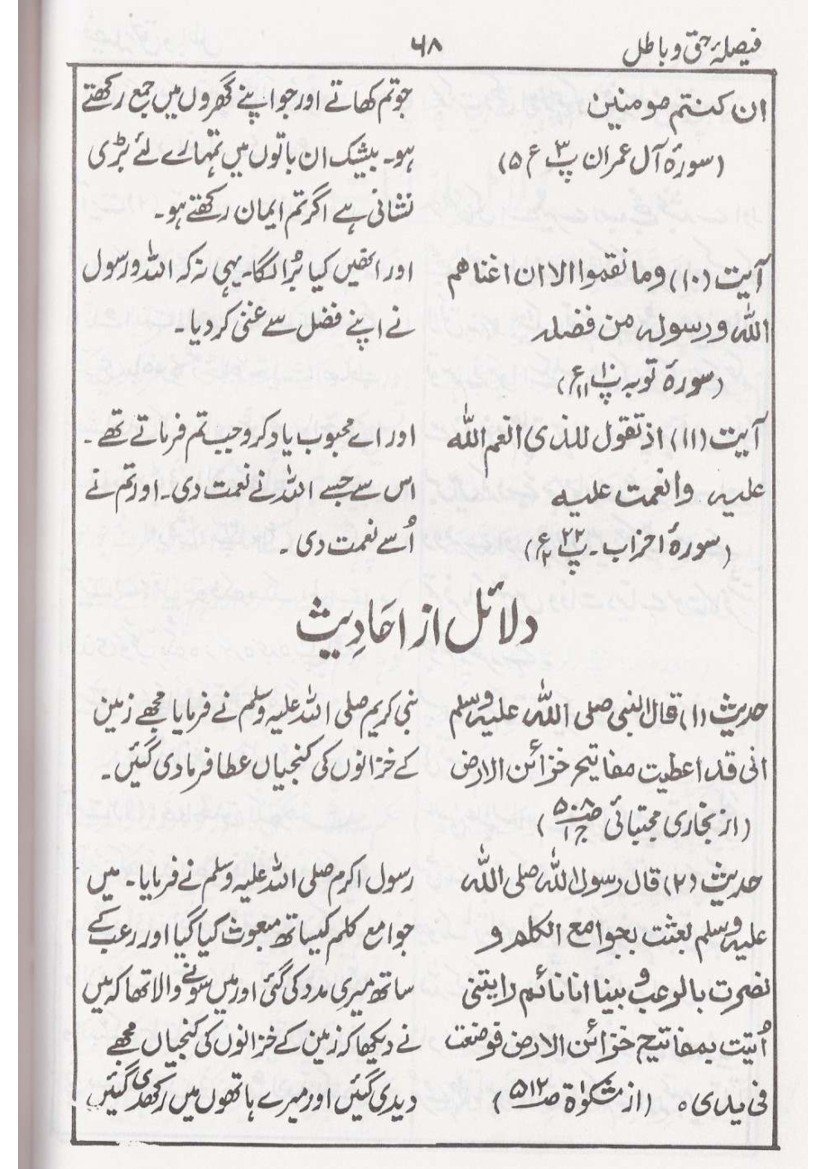 فیصلۂ حق و باطل
۶۸
ان کنتم مومنین
(سورۂ آل عمران پ ۳ ع ۵)
جو تم کھاتے اور جو اپنے گھروں میں جمع رکھتے
ہو۔ بیشک ان باتوں میں تمہارے لئے بڑی
نشانی ہے اگر تم ایمان رکھتے ہو۔
آیت (۱۰) وما نقموا الا ان اغناهم
الله ورسوله من فضله
(سورۂ توبہ پ۱۰
اور انھیں کیا بُرا لگا۔ یہی نہ کہ اللہ و رسول
نے اپنے فضل سے غنی کر دیا۔
آیت (۱۱) اذ تقول للذی انعم الله
علیه وانعمت علیه
(سورۂ احزاب۔ پ ۲۲ ع ۲)
اور اے محبوب یاد کرو جب تم فرماتے تھے۔
اس سے جسے اللہ نے نعمت دی۔ اور تم نے
اُسے نعمت دی۔
دلائل از احادیث
حدیث (۱) قال النبی صلی الله علیه وسلم
انی قد اعطیت مفاتیح خزائن الارض
(از بخاری مجتبائی صـ ۵۰۸ ج ۱)
نبی کریم صلی اللہ علیہ وسلم نے فرمایا مجھے زمین
کے خزانوں کی کنجیاں عطا فرمادی گئیں۔
حدیث (۲) قال رسول الله صلی الله
علیه وسلم بعثت بجوامع الکلم و
نصرت بالرعب و بینا انا نائم رایتنی
اُتیت بمفاتیح خزائن الارض فوضعت
فی یدی ٥ (از مشکوٰۃ صـ ۵۱۲)
رسول اکرم صلی اللہ علیہ وسلم نے فرمایا۔ میں
جوامع کلم کیساتھ مبعوث کیا گیا اور رعب کے
ساتھ میری مدد کی گئی اور میں سونے والا تھا کہ میں
نے دیکھا کہ زمین کے خزانوں کی کنجیاں مجھے
دیدی گئیں اور میرے ہاتھوں میں رکھدی گئیں